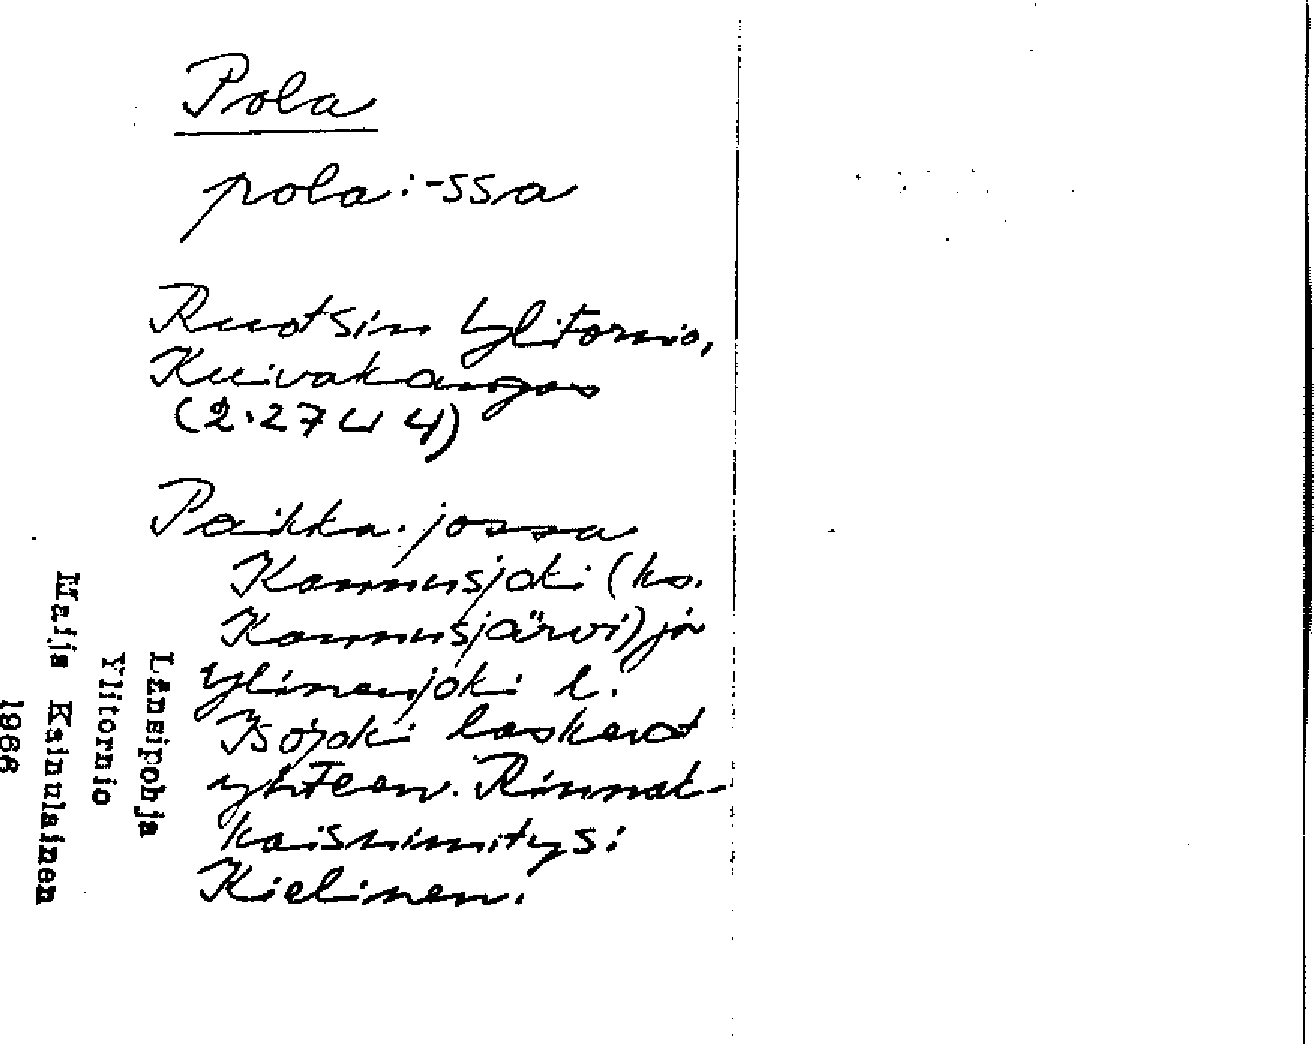 Pola
pola:-ssa
Ruotsin Ylitornio,
Kuivakangas
(2.27
Paikka, jossa
Kannusjoki (ks.
Kannusjärvi) ja
Ylinenjoki l.
Isojoki laskevat
yhteen. Rinnak-
kaisnimitys:
Kielinen.
Länsipohja
Ylitornio
Maija Kainulainen
1968